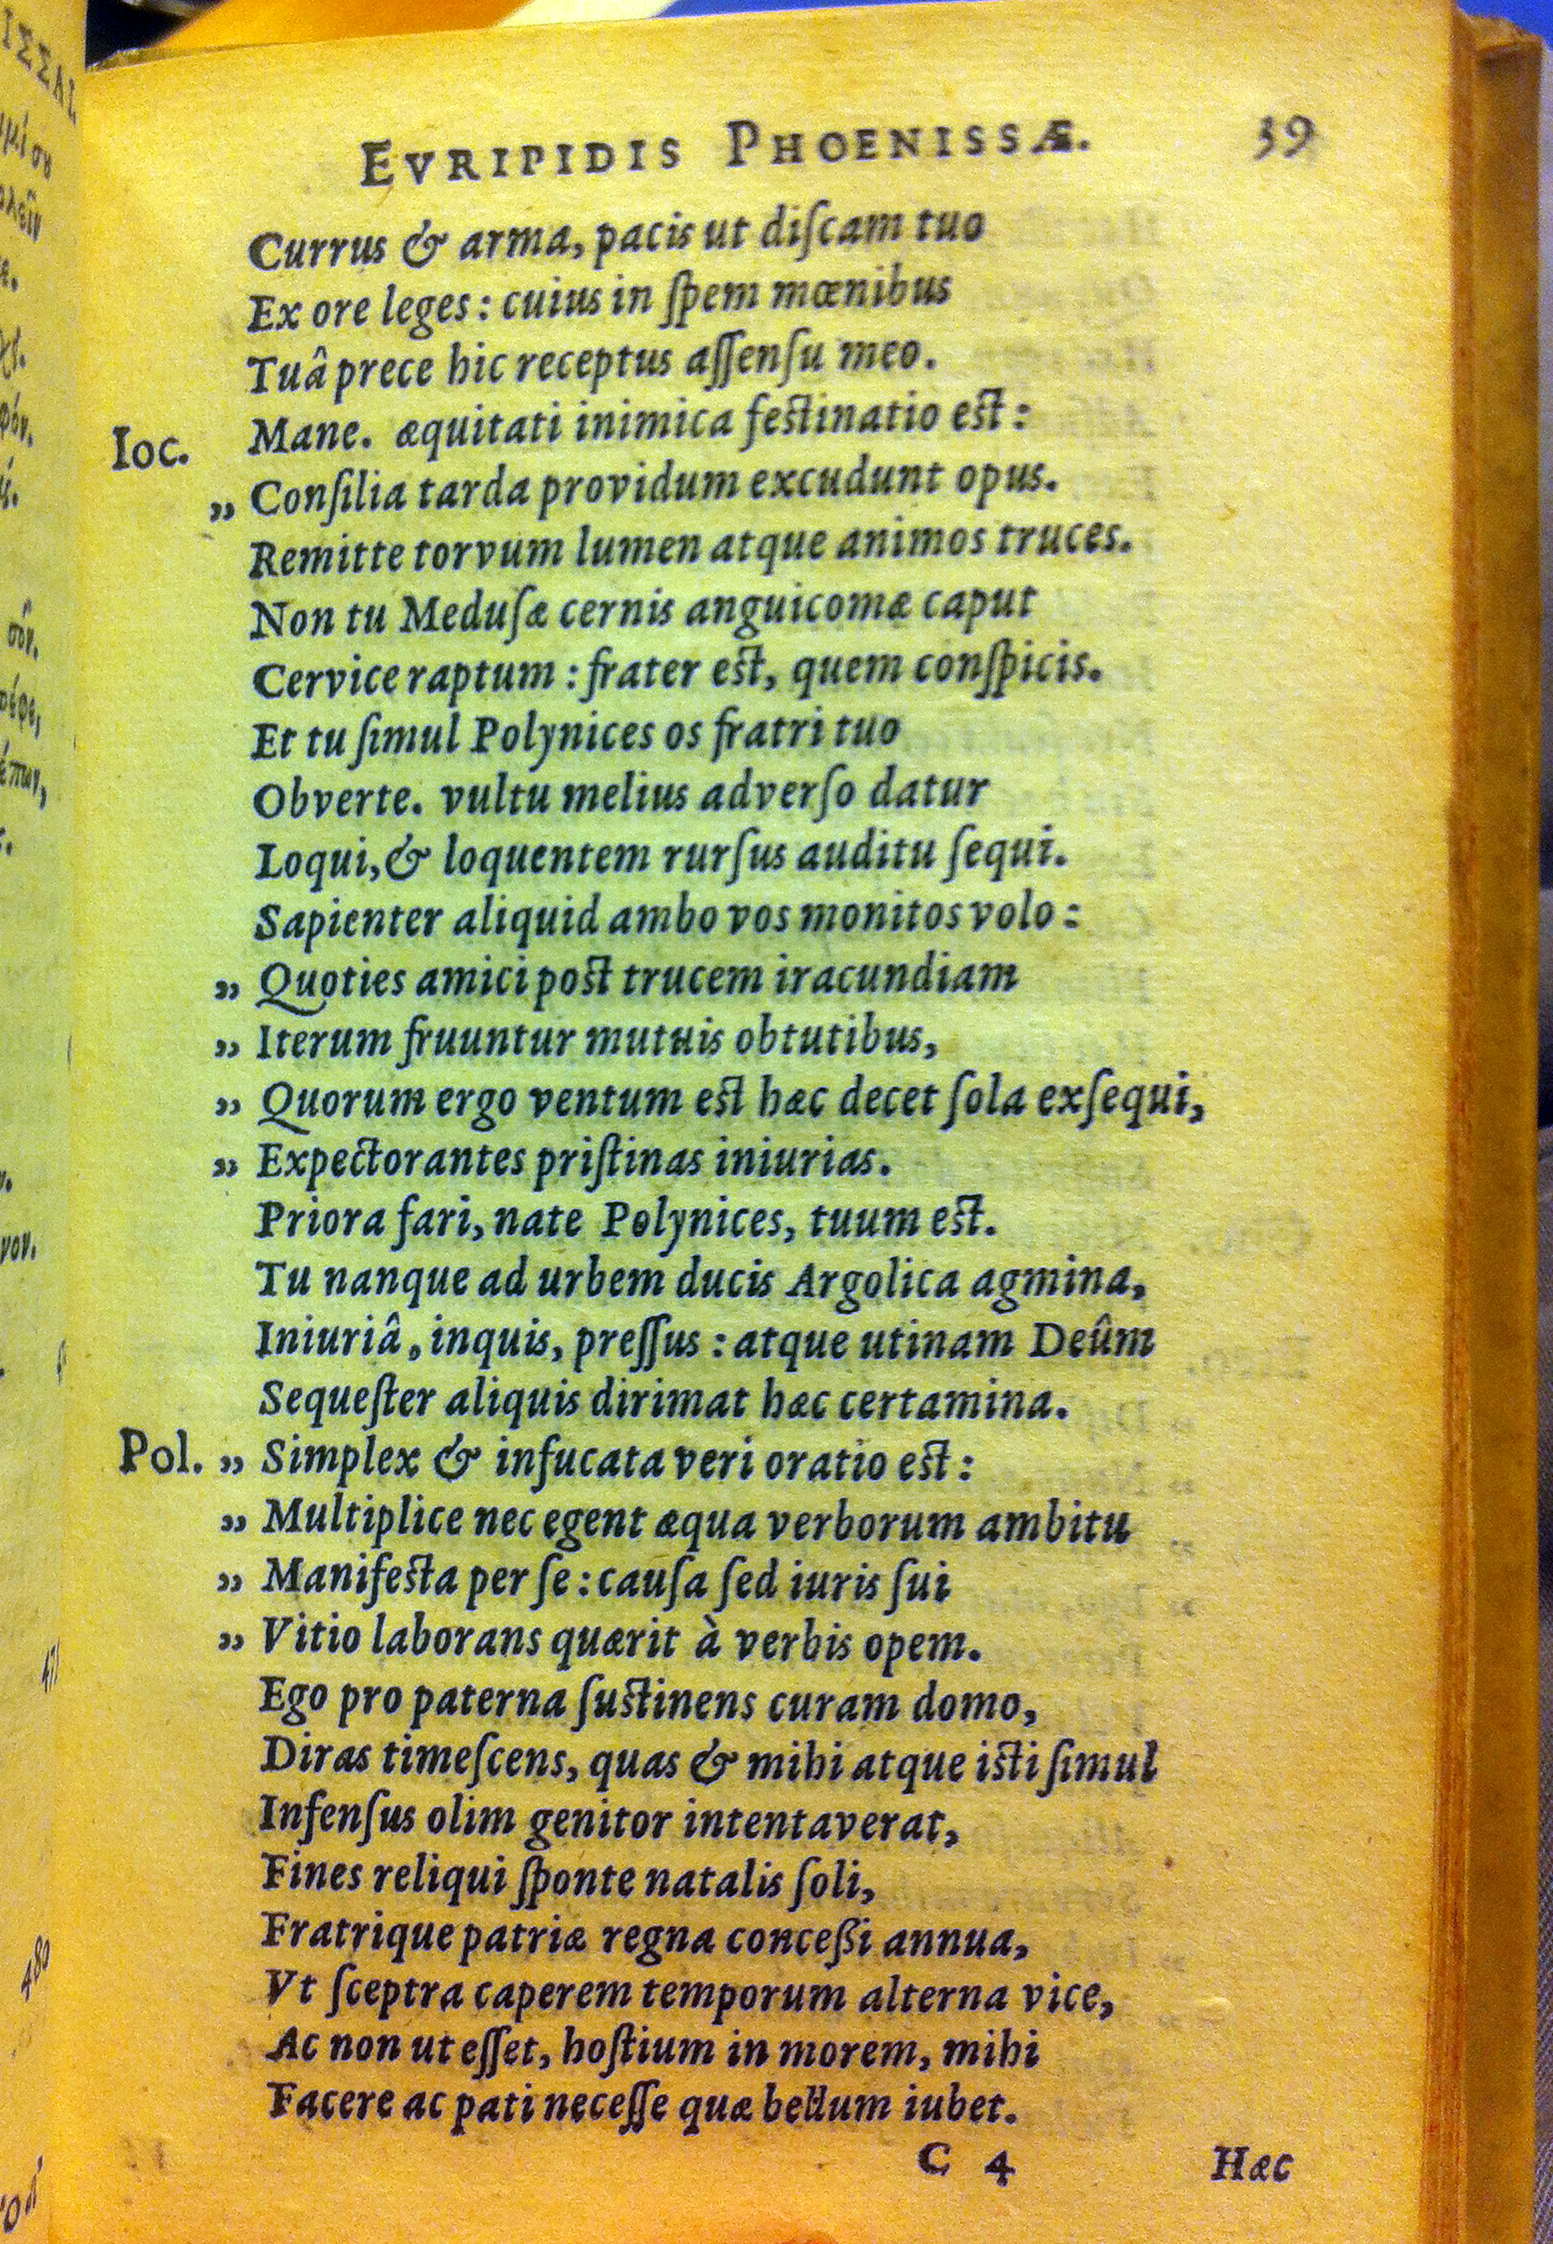 EVRIPIDIS PHOENISSÆ. 39
Currus & arma, pacis ut diſcam tuo
Ex ore leges: cuius in ſpem mœnibus
Tuâ prece hic receptus aſſenſu meo.
Ioc. Mane. æquitati inimica feſtinatio eſt:
„ Conſilia tarda providum excudunt opus.
Remitte torvum lumen atque animos truces.
Non tu Meduſæ cernis anguicomæ caput
Cervice raptum: frater eſt, quem conſpicis.
Et tu ſimul Polynices os fratri tuo
Obverte. vultu melius adverſo datur
Loqui, & loquentem rurſus auditu ſequi.
Sapienter aliquid ambo vos monitos volo:
„ Quoties amici poſt trucem iracundiam
„ Iterum fruuntur mutuis obtutibus,
„ Quorum ergo ventum eſt hæc decet ſola exſequi,
„ Expectorantes priſtinas iniurias.
Priora fari, nate Polynices, tuum eſt.
Tu nanque ad urbem ducis Argolica agmina,
Iniuriâ, inquis, preſſus: atque utinam Deûm
Sequeſter aliquis dirimat hæc certamina.
Pol. „ Simplex & infucata veri oratio eſt:
„ Multiplice nec egent æqua verborum ambitu
„ Manifeſta per ſe: cauſa ſed iuris ſui
„ Vitio laborans quærit à verbis opem.
Ego pro paterna ſuſtinens curam domo,
Diras timeſcens, quas & mihi atque iſti ſimul
Infenſus olim genitor intentaverat,
Fines reliqui ſponte natalis ſoli,
Fratrique patriæ regna conceßi annua,
Vt ſceptra caperem temporum alterna vice,
Ac non ut eſſet, hoſtium in morem, mihi
Facere ac pati neceſſe quæ bellum iubet.
C 4 Hæc